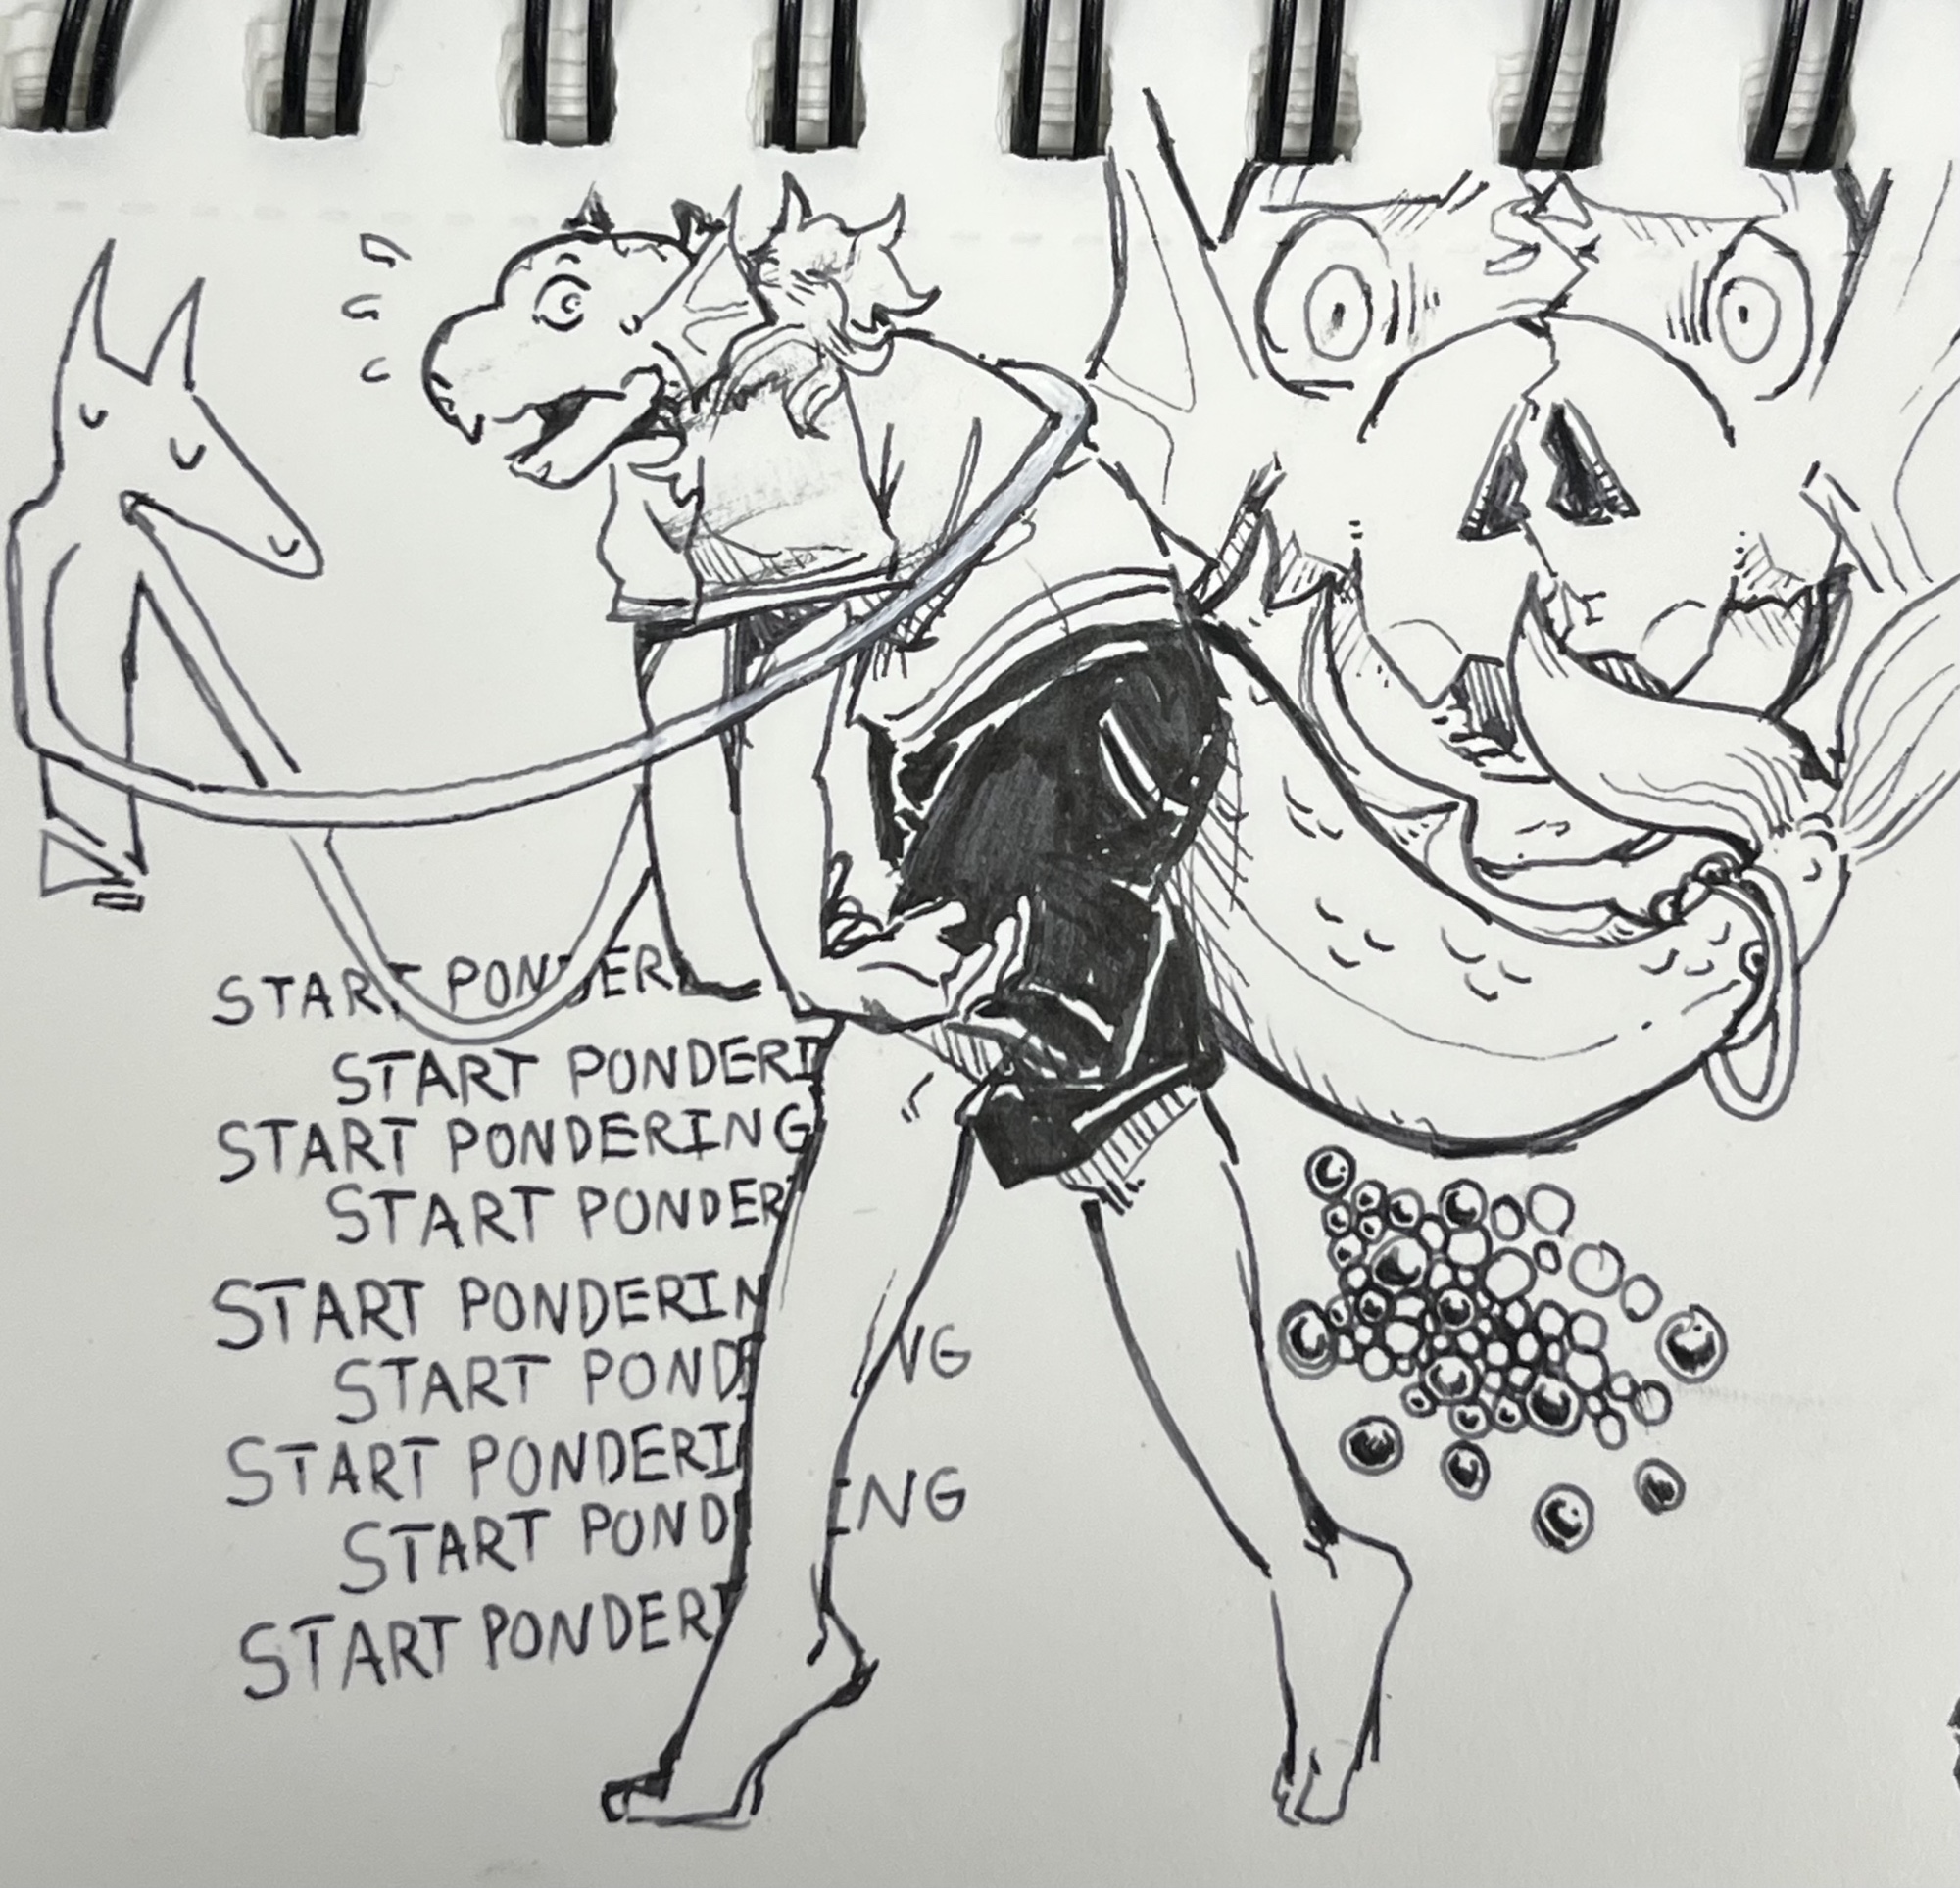 START PONDER
START PONDERI
START PONDERING
START PONDER
START PONDERIN
START POND NG
START PONDERI
START POND ING
START PONDERI